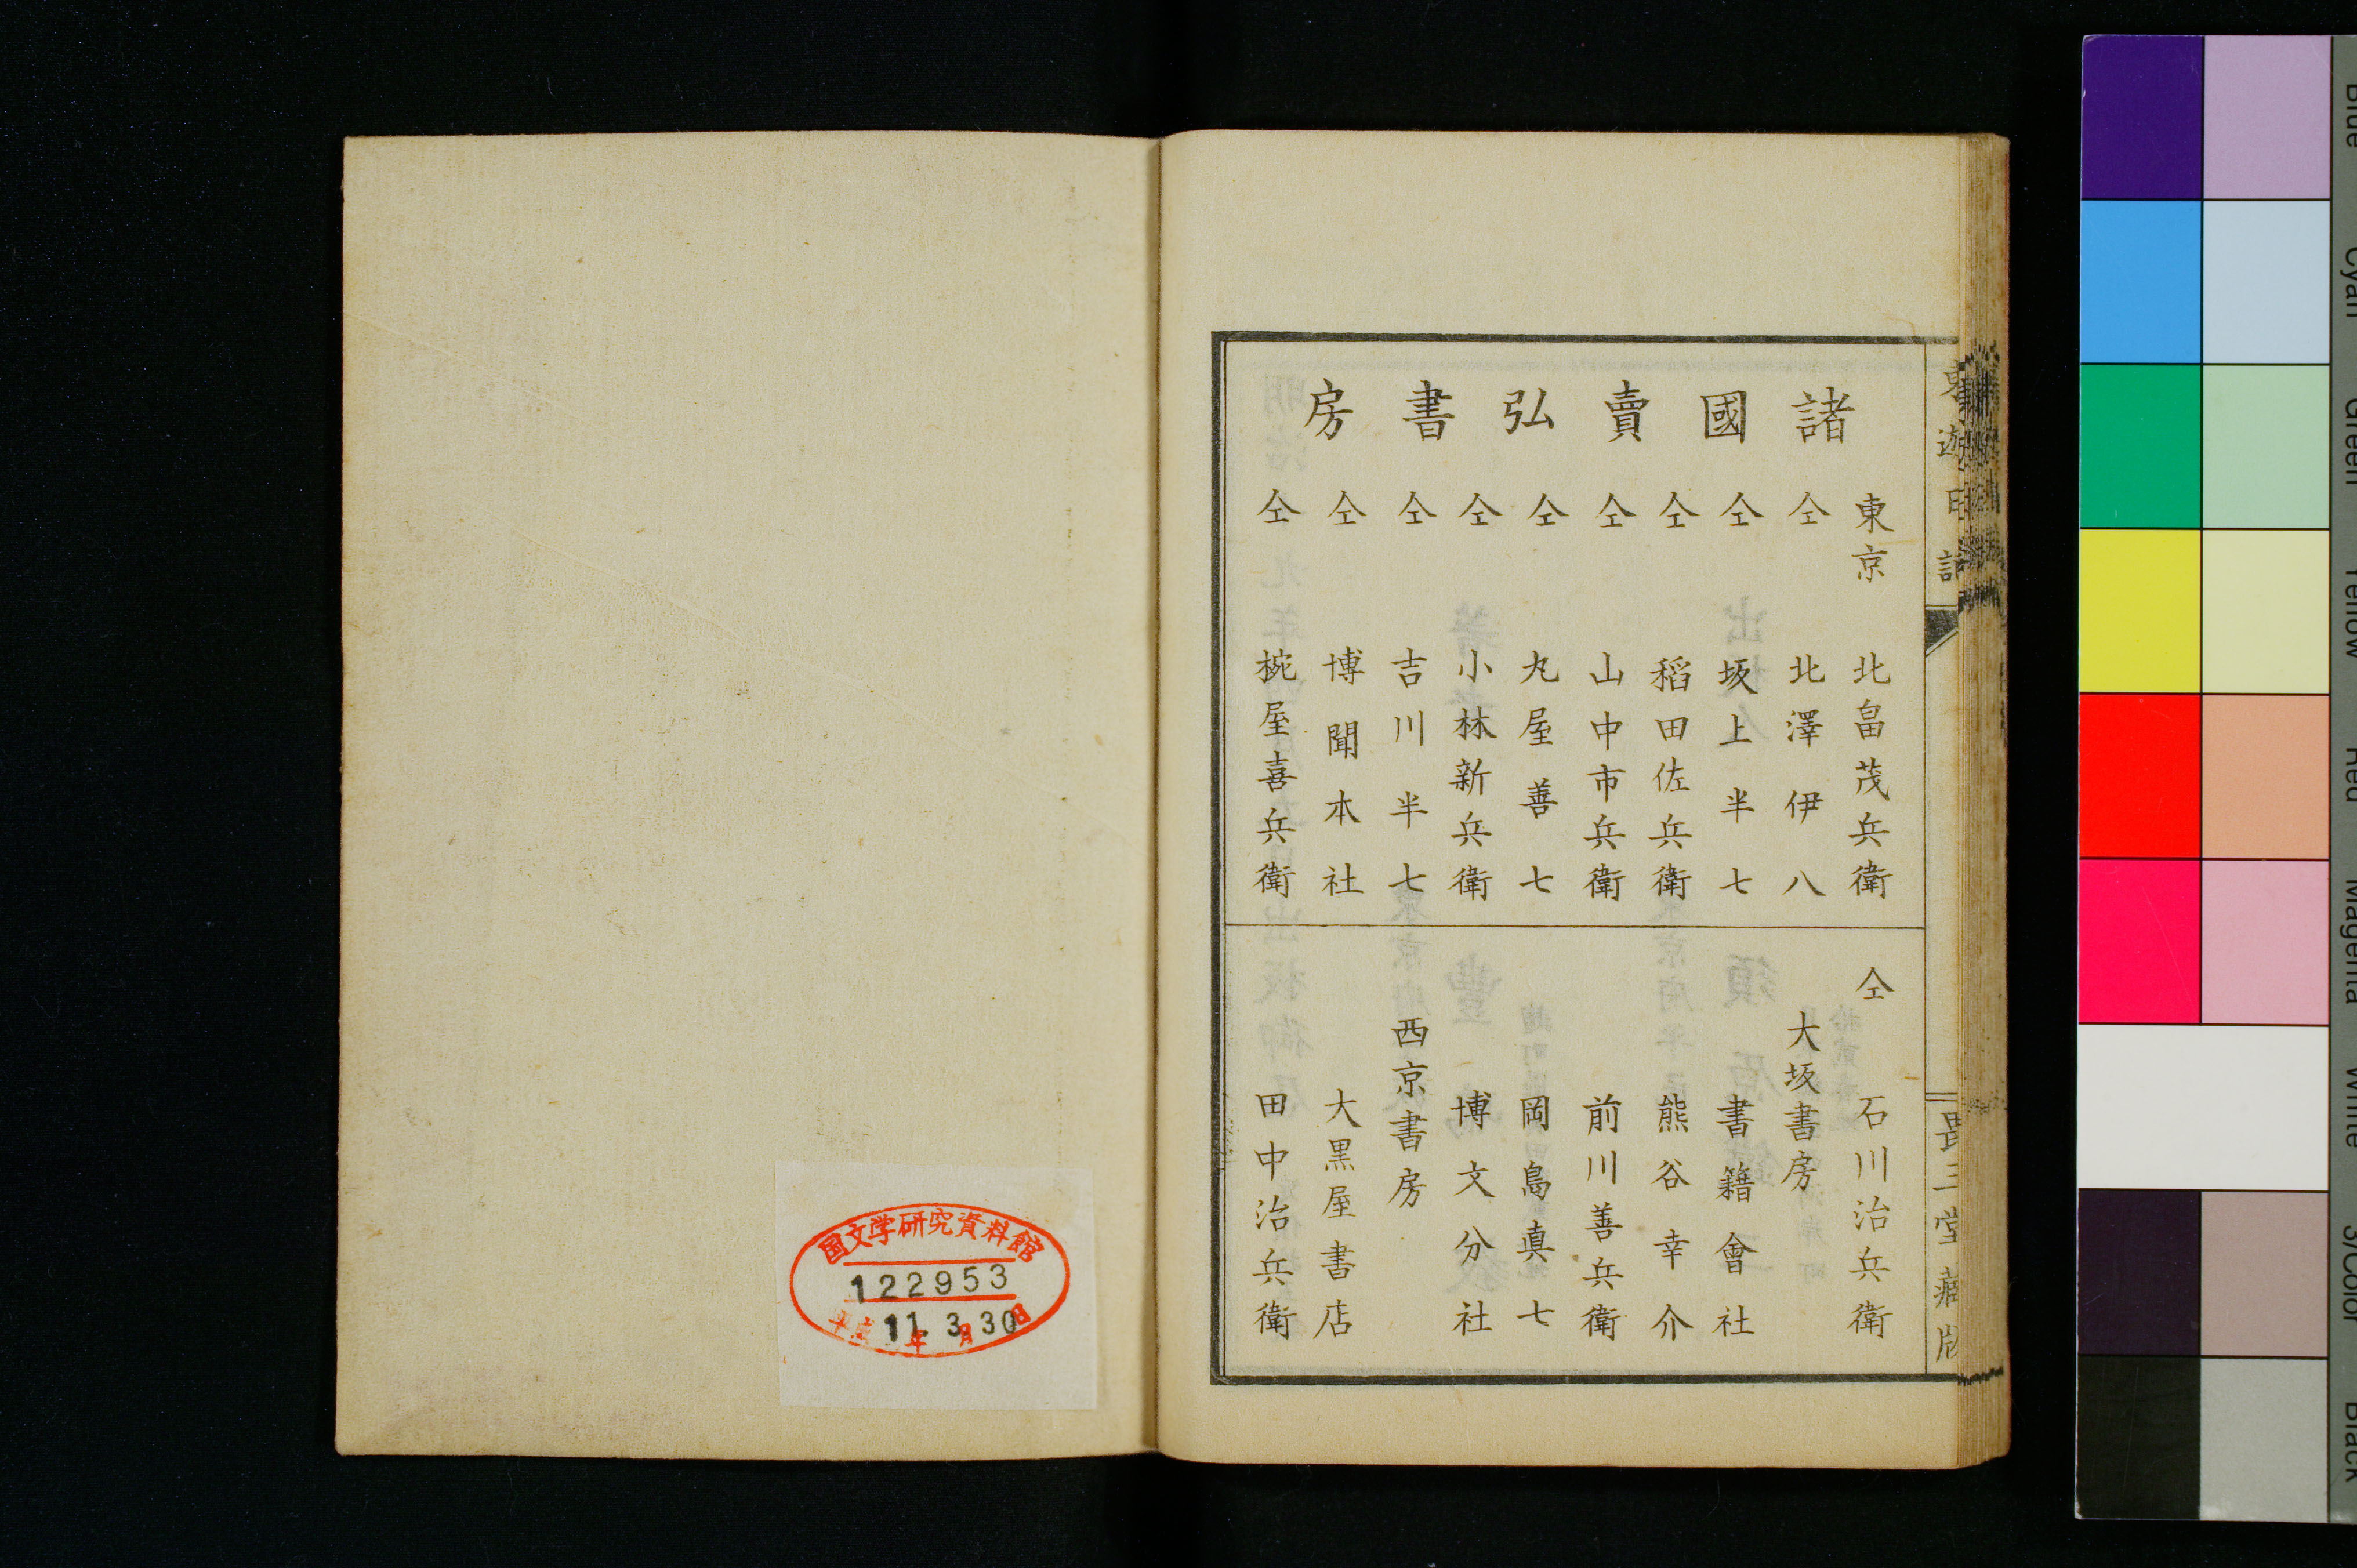 東遊日記
畏三堂藏版
諸國賣弘書房
東京 北畠茂兵衛
仝 北澤伊八
仝 坂上半七
仝 稻田佐兵衛
仝 山中市兵衛
仝 丸屋善七
仝 小林新兵衛
仝 吉川半七
仝 博聞本社
仝 椀屋喜兵衛
仝 石川治兵衛
大坂書房
書籍會社
熊谷幸介
前川善兵衛
岡島真七
博文分社
西京書房
大黒屋書店
田中治兵衛
国文学研究資料館
122953
平成11年3月30日
Blue
Cyan
Green
Yellow
Red
Magenta
White
3/Color
Black